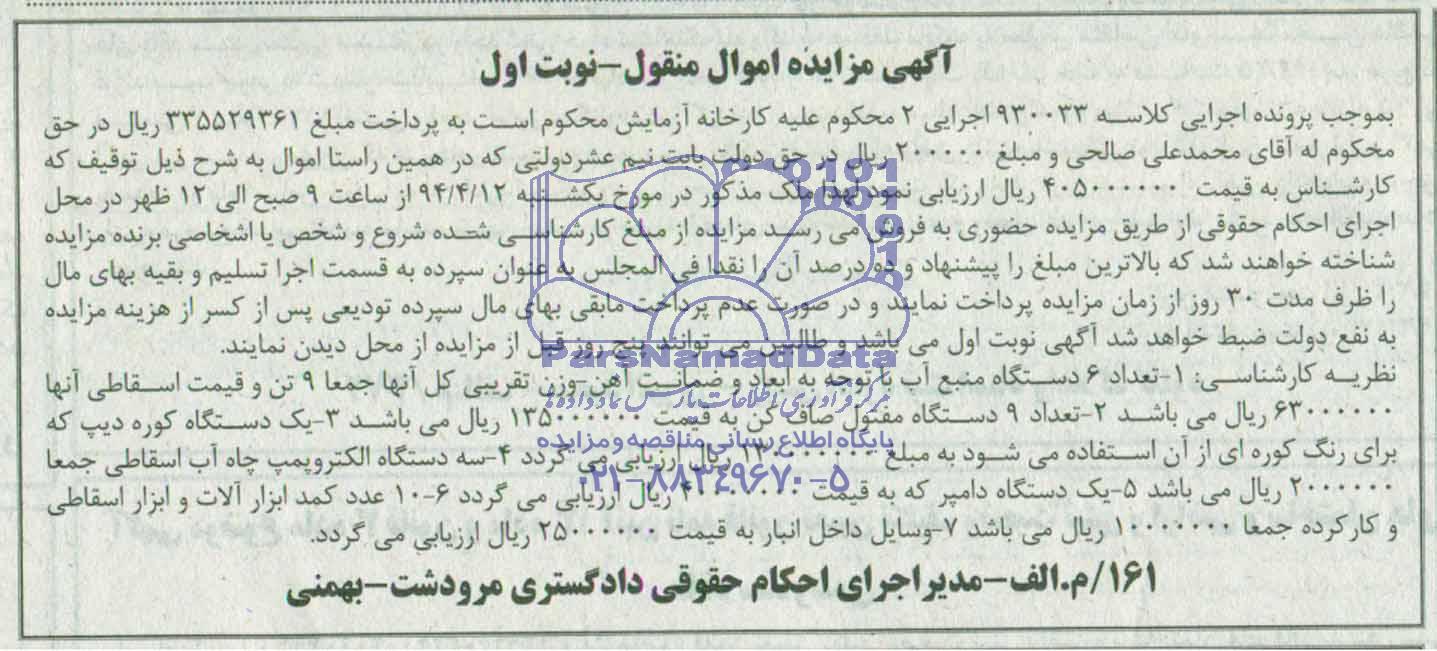 آگهی مزایده اموال منقول-نوبت اول
بموجب پرونده اجرایی کلاسه ۹۳۰۰۳۳ اجرایی ۲ محکوم علیه کارخانه آزمایش محکوم است به پرداخت مبلغ ۳۳۵۵۲۹۳۶۱ ریال در حق
محکوم له آقای محمدعلی صالحی و مبلغ ۲۰۰۰۰۰۰ ریال در حق دولت بابت نیم عشردولتی که در همین راستا اموال به شرح ذیل توقیف که
کارشناس به قیمت ۴۰۵۰۰۰۰۰۰ ریال ارزیابی نمود لهذا ملک مذکور در مورخ یکشنبه ۹۴/۴/۱۲ از ساعت ۹ صبح الی ۱۲ ظهر در محل
اجرای احکام حقوقی از طریق مزایده حضوری به فروش می رسد مزایده از مبلغ کارشناسی شده شروع و شخص یا اشخاصی برنده مزایده
شناخته خواهند شد که بالاترین مبلغ را پیشنهاد و ده درصد آن را نقدا فی المجلس به عنوان سپرده به قسمت اجرا تسلیم و بقیه بهای مال
را ظرف مدت ۳۰ روز از زمان مزایده پرداخت نمایند و در صورت عدم پرداخت مابقی بهای مال سپرده تودیعی پس از کسر از هزینه مزایده
به نفع دولت ضبط خواهد شد آگهی نوبت اول می باشد و طالبین می توانند پنج روز قبل از مزایده از محل دیدن نمایند.
نظریه کارشناسی: ۱-تعداد ۶ دستگاه منبع آب با توجه به ابعاد و ضمانت آهن-وزن تقریبی کل آنها جمعا ۹ تن و قیمت اسقاطی آنها
۶۳۰۰۰۰۰۰ ریال می باشد ۲-تعداد ۹ دستگاه مفتول صاف کن به قیمت ۱۳۵۰۰۰۰۰۰ ریال می باشد ۳-یک دستگاه کوره دیپ که
برای رنگ کوره ای از آن استفاده می شود به مبلغ ریال ارزیابی می گردد ۴-سه دستگاه الکتروپمپ چاه آب اسقاطی جمعا
۲۰۰۰۰۰۰ ریال می باشد ۵-یک دستگاه دامپر که به قیمت ریال ارزیابی می گردد ۶-۱۰ عدد کمد ابزار آلات و ابزار اسقاطی
و کارکرده جمعا ۱۰۰۰۰۰۰۰ ریال می باشد ۷-وسایل داخل انبار به قیمت ۲۵۰۰۰۰۰۰ ریال ارزیابی می گردد.
۱۶۱/م.الف-مدیر اجرای احکام حقوقی دادگستری مرودشت-بهمنی
ParsNamadData
مرکز فرآوری اطلاعات پارس نماد داده ها
پایگاه اطلاع رسانی مناقصه و مزایده
۰۲۱-۸۸۳۴۹۶۷۰-۵